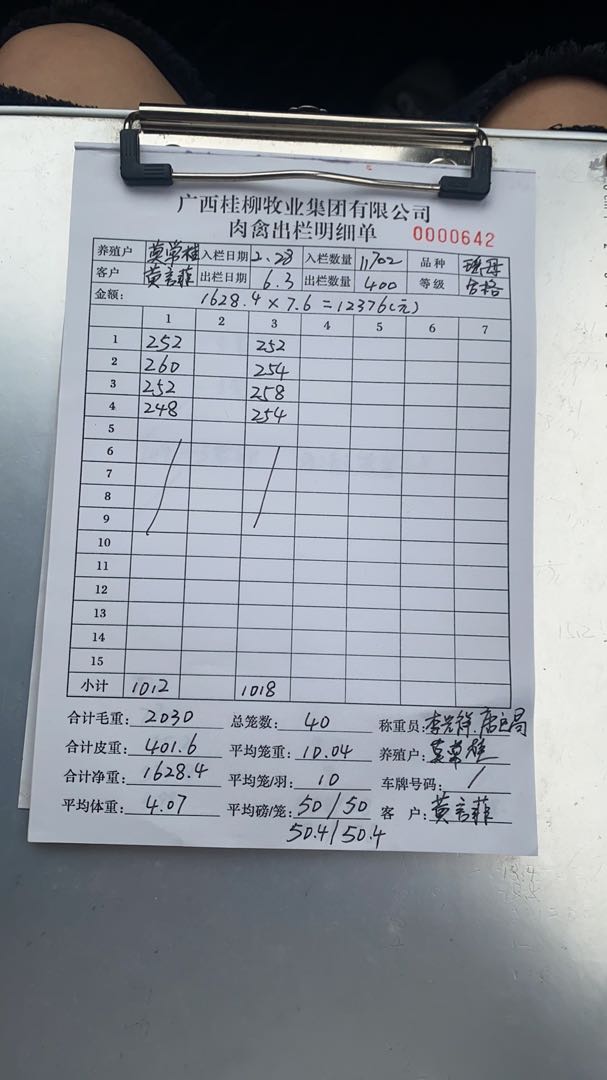 广西桂柳牧业集团有限公司
肉禽出栏明细单 0000642
养殖户 莫学桂 入栏日期 2.28 入栏数量 11702 品种
客户 黄言菲 出栏日期 6.3 出栏数量 400 等级 合格
金额: 1628.4×7.6=12376(元)
1 2 3 4 5 6 7
1 252 252
2 260 254
3 252 258
4 248 254
5
6
7
8
9
10
11
12
13
14
15
小计 1012 1018
合计毛重: 2030 总笼数: 40 称重员:
合计皮重: 401.6 平均笼重: 10.04 养殖户:
合计净重: 1628.4 平均笼/羽: 10 车牌号码: /
平均体重: 4.07 平均磅/笼: 50/50 客 户: 黄言菲
50.4/50.4